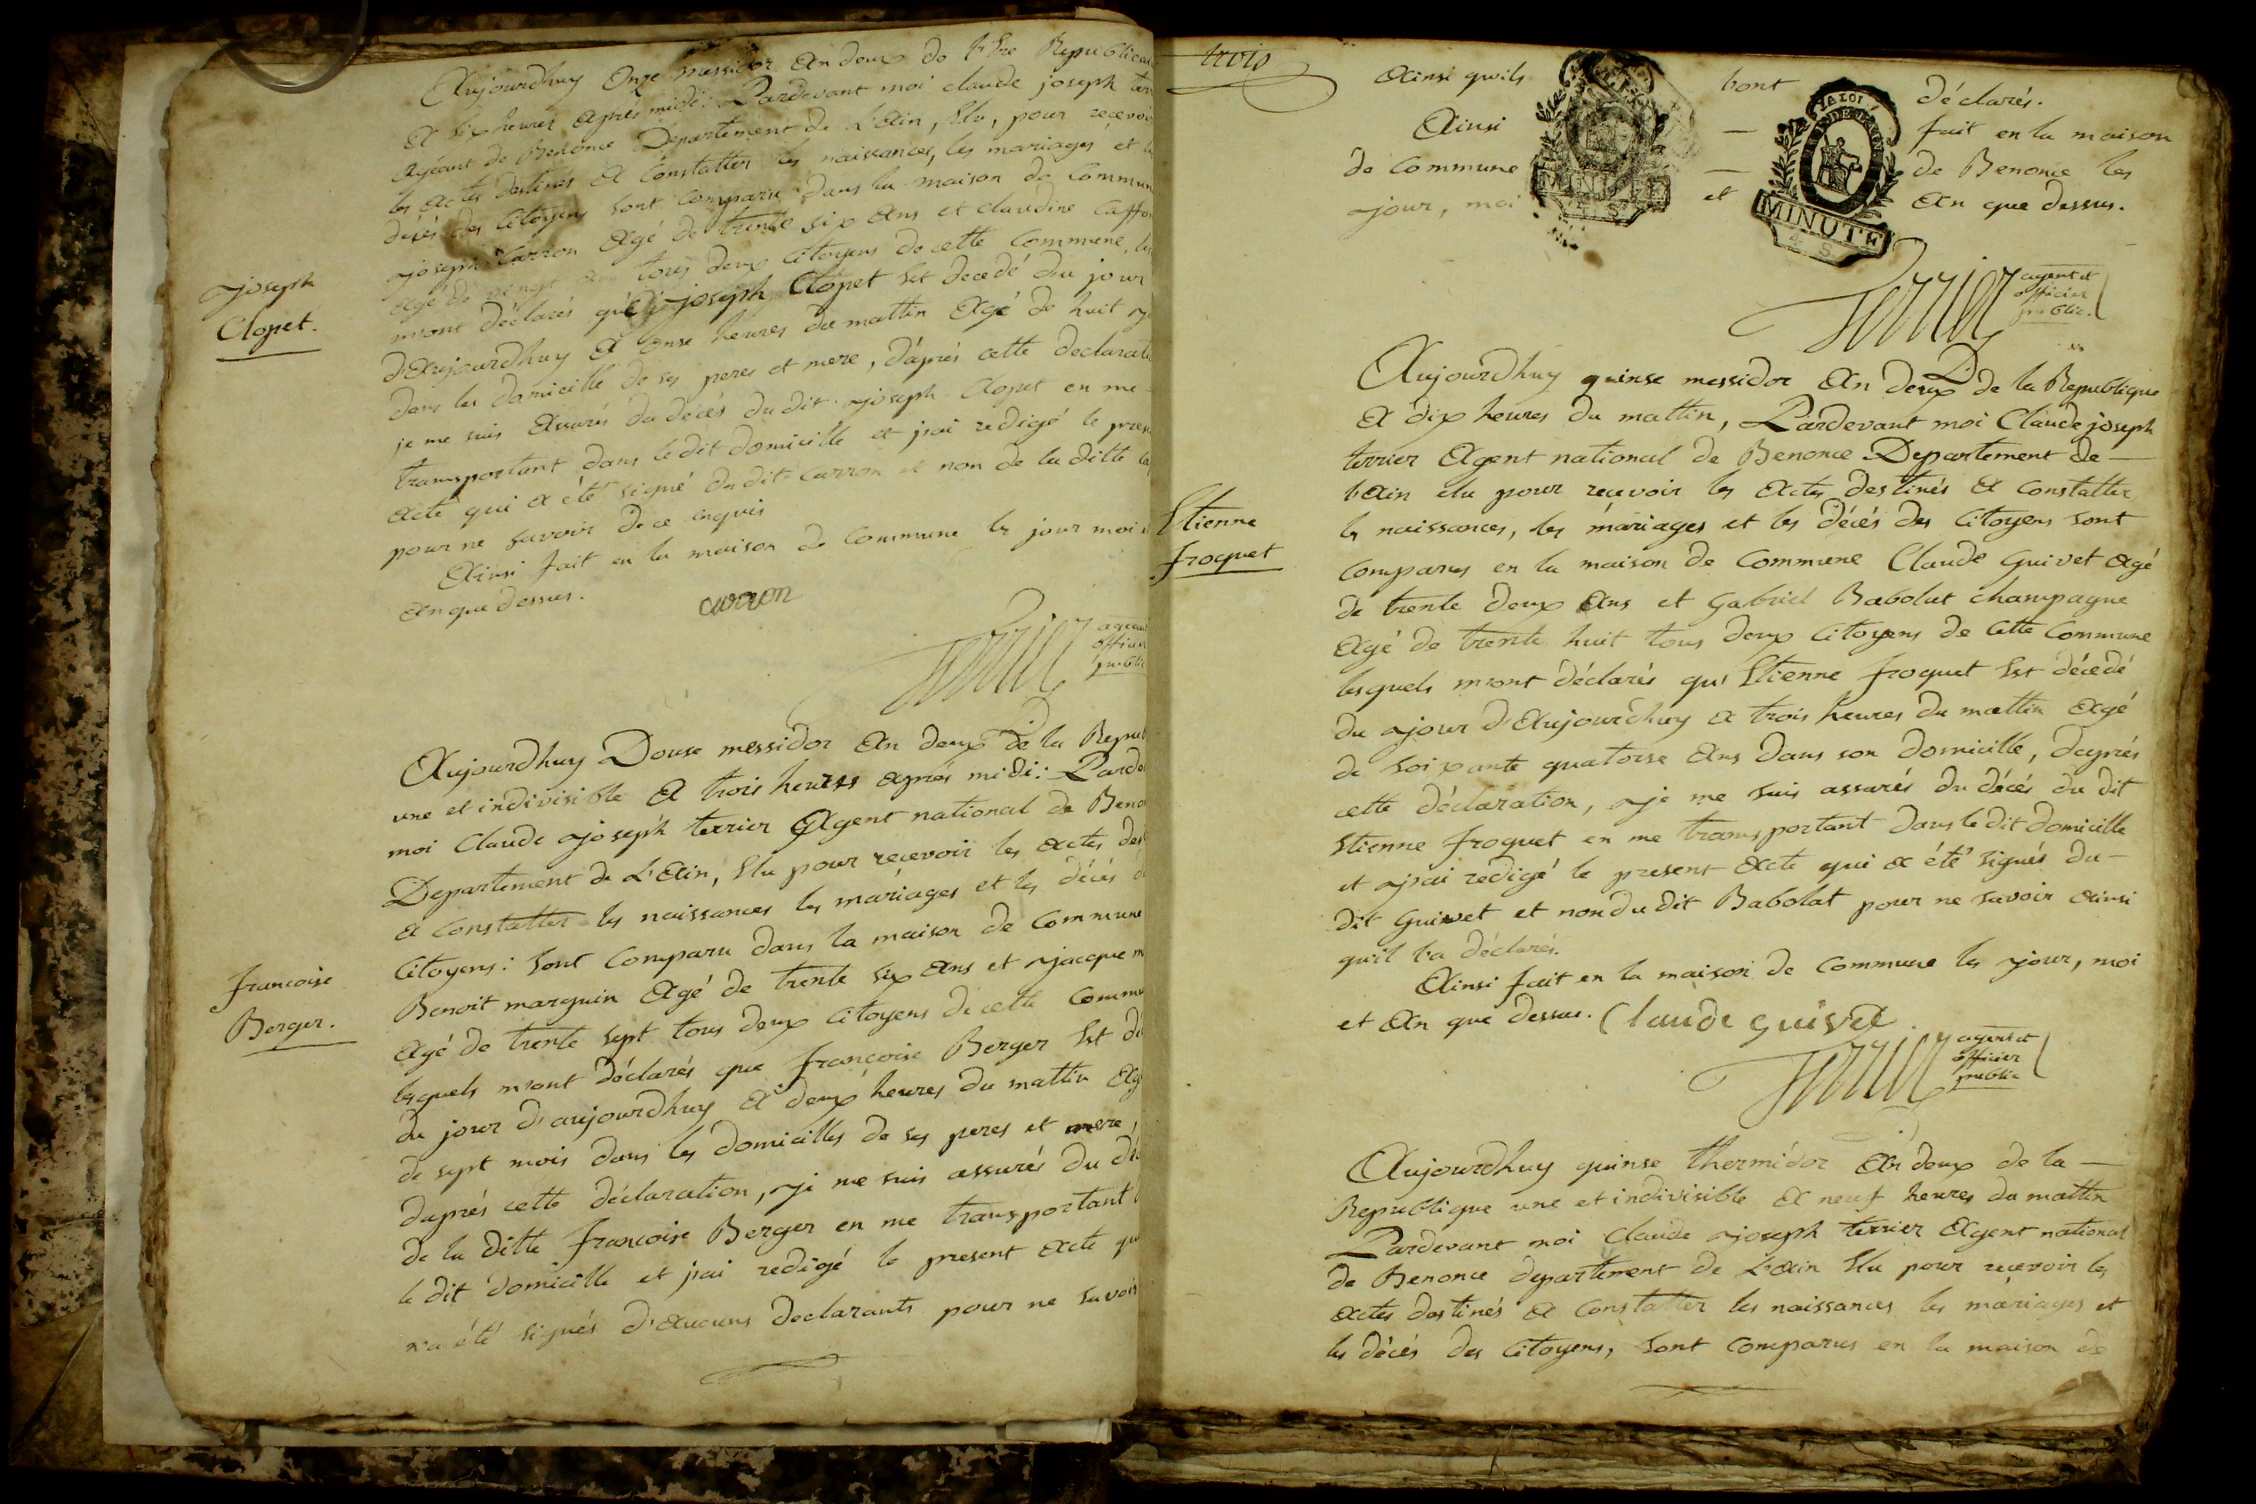 Aujourdhuy Onze messidor An deux de l'Ere Republicai
A six heures Aprés midi: Pardevant moi claude joseph terr
Agéant de Benonce Departement de L'Ain, Elu, pour recevoi
les Actes destinés A Constatter les naissances, les mariages et le
décés des Citoyens sont Comparu dans la maison de Commun
joseph Carron Agé de trente six Ans et claudine Caffo
Agé de vengt tous deux Citoyens de cette Commune, les
m'ont déclarés qu'e joseph Clopet Est decedé du jour
d'Aujourdhuy A onse heures du mattin Agé de huit
dans les domicille de ses peres et mere, d'áprés cette declarati
je me suis Assurés du decés du dit joseph Clopet en me
transportant dans le dit domicille et jai redigé le prese
Acte qui a été signé du dit Carron et non de la ditte Ca
pour ne savoir de ce enquis
Ainsi fait en la maison de Commune les jour moi e
An que dessus.
carron
Terrier agent
officier
public
joseph
Clopet.
Aujourdhuy Douse messidor An deux de la Repub
une et indivisible A trois heures aprés midi: Parde
moi Claude joseph terrier Agent national de Beno
Departement de L'Ain, Elu pour recevoir les actes des
A Constatter les naissances les mariages et les décés d
Citoyens: sont Comparu dans la maison de Commune
Benoit marguin Agé de trente six Ans et jacque m
Agé de trente sept tous deux Citoyens de cette Commu
lesquels m'ont déclarés que françoise Berger Est dé
du jour d'aujourdhuy A deux heures du mattin Ag
de sept mois dans les domicilles de ses peres et mere,
daprés cette déclaration, je me suis assurés du dé
de la ditte françoise Berger en me transportant
le dit domicille et jai redigé le present Acte qu
n'a été signés d'Aucuns declarants pour ne savoir
francoise
Berger.
trois
Ainsi qu'ils l'ont déclarés.
Ainsi — fait en la maison
de Commune — de Benonce les
jour, moi et An que dessus.
LA LOI
MINUTE
4 S
MINUTE
Terrier agent et
officier
public.
Aujourdhuy quinse messidor An deux de la Republique
A dix heures du mattin, Pardevant moi Claude joseph
terrier Agent national de Benonce Departement de —
l'Ain elu pour reçevoir les Actes destinés A Constatter
les naissances, les mariages et les décés des Citoyens sont
Comparus en la maison de Commune Claude Guivet Agé
de trente deux Ans et Gabriel Babolat champagne
Agé de trente huit tous deux Citoyens de Cette Commune
lesquels m'ont déclarés qu' Etienne froquet Est décedé
du jour d'Aujourdhuy A trois heures du mattin Agé
de soixante quatorse Ans dans son domicille, daprés
cette déclaration, je me suis assurés du décés du dit
Etienne froquet en me transportant dans le dit domicille
et j'ai redigé le present Acte qui a été signés du —
dit Guivet et non du dit Babolat pour ne savoir Ainsi
qu'il l'a déclarés.
Ainsi fait en la maison de Commune les jour, moi
et An que dessus. Claude guivet
Terrier agent et
officier
public
Etienne
froquet
Aujourdhuy quinse thermidor An deux de la —
Republique une et indivisible A neuf heures du mattin
Pardevant moi Claude joseph terrier Agent national
de Benonce departement de L'Ain Elu pour recevoir les
Actes destinés A Constatter les naissances les mariages et
les décés des Citoyens, sont Comparus en la maison de